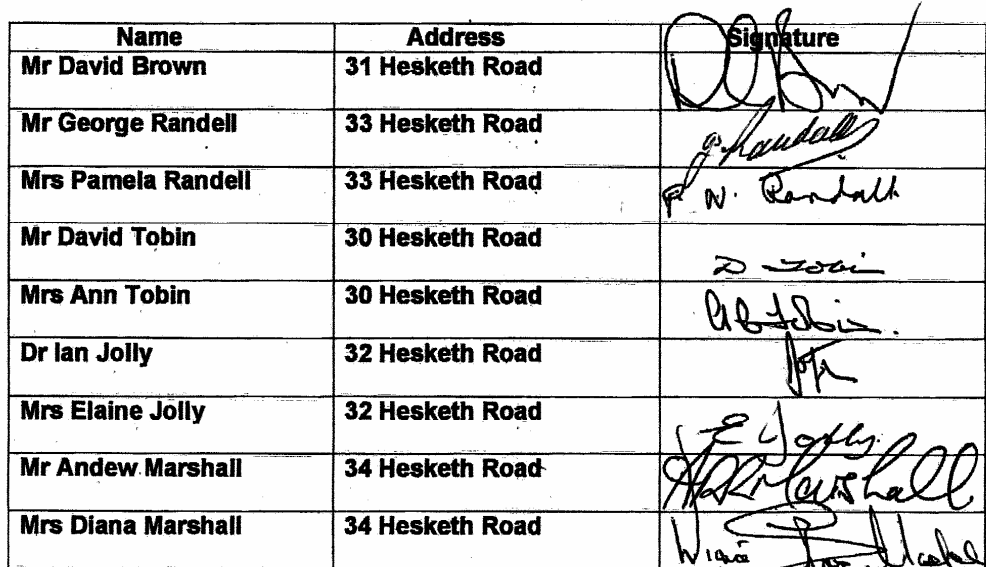 Name Address Signature
Mr David Brown 31 Hesketh Road
Mr George Randell 33 Hesketh Road G. Randall
Mrs Pamela Randell 33 Hesketh Road P N. Randall
Mr David Tobin 30 Hesketh Road D Tobin
Mrs Ann Tobin 30 Hesketh Road A B Tobin.
Dr Ian Jolly 32 Hesketh Road
Mrs Elaine Jolly 32 Hesketh Road E Jolly
Mr Andew Marshall 34 Hesketh Road Marshall
Mrs Diana Marshall 34 Hesketh Road